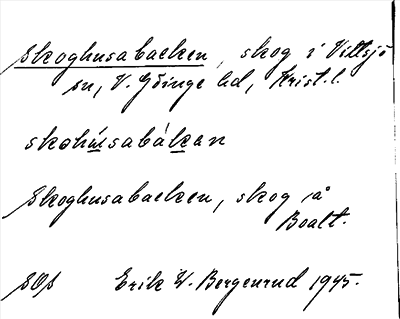 Skoghusabacken, skog i Vittsjö
sn, V. Göinge hd, Krist. l.
skohúsabákan
Skoghusabacken, skog på
Boalt.
SOS Erik W. Bergenrud 1945.